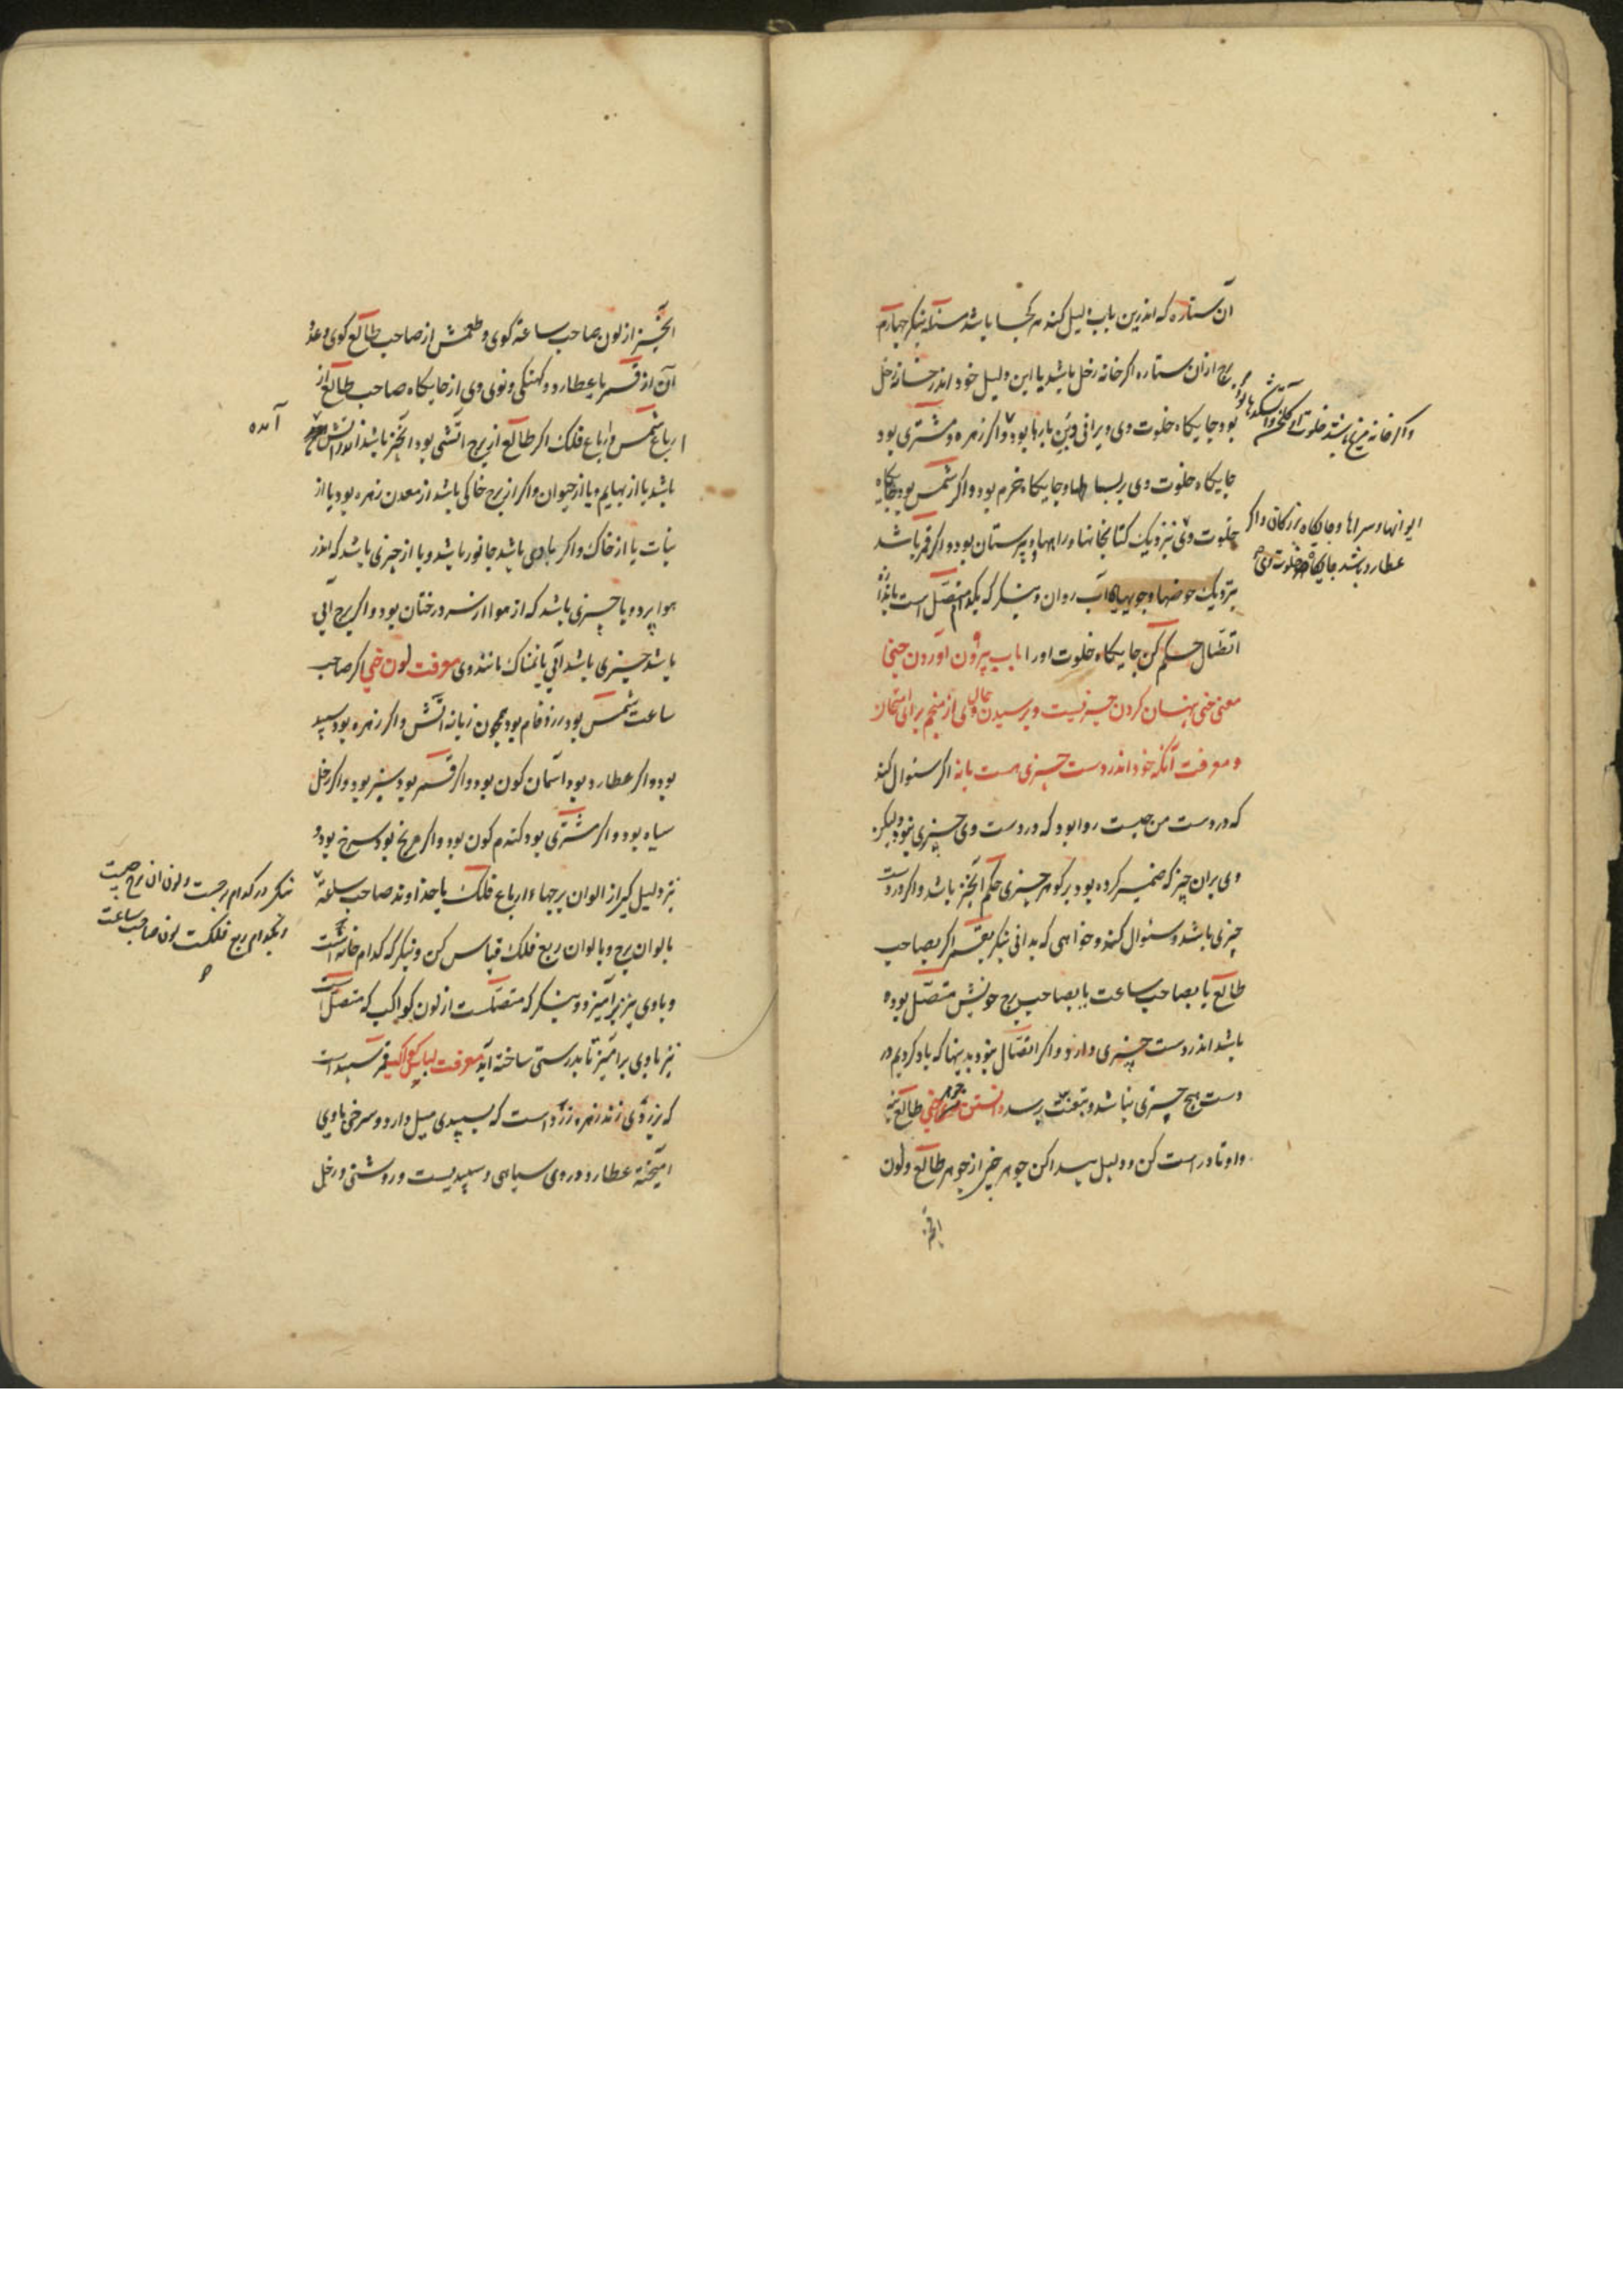 آن ستاره که اندرین باب دلیل کند هر کجا باشد ستاره بنکر چهارم
برج از آن ستاره اکر خانه زحل باشد یا این دلیل خود اندر خانه زحل
بود جایکاه خلوت وی ویرانی و بارها بود و اکر زهره و مشتری بود
جایکاه خلوت وی بر بساطها و جایکاه خرم بود و اکر شمس بود جایکاه
خلوت وی نزدیک کتابخانها و راهها و پرستان بود و اکر قمر باشد
نزدیک حوضها و جویهاء آب روان و بنکر که بکدام متصل است باندازه
اتصال حکم کن جایکاه خلوت او را باب بیرون آوردن خبی
معنی خبی پنهان کردن چیزیست و پرسیدن حال وی از منجم برای امتحان
و معرفت آنکه خود اندر دست چیزی هست یا نه اکر سئوال کند
که در دست من چیست روا بود که در دست وی چیزی نبود ولیکن
وی بران چیز که ضمیر کرده بود بر کوهر چیزی حکم آنچیز باشد و اکر در دست
چیزی باشد و سئوال کند و خواهی که بدانی بنکر بقمر اکر بصاحب
طالع یا بصاحب ساعت یا بصاحب برج خویش متصل بوده
باشد اندر دست چیزی دارد و اکر اتصال نبود بدینها که یاد کردیم در
دست هیچ چیزی نباشد و بتعنت پرسد دانستن جوهر خبی طالع بنه
و اوتاد راست کن و دلیل پیدا کن جوهر خبی از جوهر طالع و لون
واکر خانه مریخ باشد خلوت آن کلخن و آتشکدها بود
ایوانها و سراها و جایکاه بزرکان و اکر
عطارد باشد جایکاه خلوت وی
آنچیز از لون صاحب ساعة کوی و طعمش از صاحب طالع کوی و عدد
آن از قمر یا عطارد و کهنکی و نوی وی از جایکاه صاحب طالع از
ارباع شمس و ارباع فلک اکر طالع از برج آتشی بود آنچیز باشد اندر آتش
باشد یا از بهایم و یا از حیوان و اکر از برج خاکی باشد از معدن زهره بود یا از
نبات یا از خاک و اکر بادی باشد جانور باشد و یا از چیزی باشد که اندر
هوا پرد و یا چیزی باشد که از هوا از سر درختان بود و اکر برج آبی
باشد چیزی باشد آبی یا نمناک مانند وی معرفت لون خبی اکر صاحب
ساعت شمس بود زرد فام بود همچون زبانه آتش و اکر زهره بود سپید
بود و اکر عطارد بود آسمان کون بود و اکر قمر بود سبز بود و اکر زحل
سیاه بود و اکر مشتری بود کندم کون بود و اکر مریخ بود سرخ بود و
نیز دلیل کیر از الوان برجها و ارباع فلک یا خداوند صاحب ساعة
بالوان برج و بالوان ربع فلک قیاس کن و بنکر که کدام خانه است
و باوی نیز برآمیز و بنکر که متصلست از لون کواکب که متصل است
نیز باوی برآمیز تا بدرستی ساخته آید معرفت لباس کواکب قمر سپید است
که بزردی زند زهره زرد است که بسپیدی میل دارد و سرخی باوی
آمیخته عطارد در وی سیاهی و سپیدیست و روشنی و زحل
آمده
بنکر در کدام برجست و لون آن برج چیست
و بکدام ربع فلکست لون صاحب ساعت